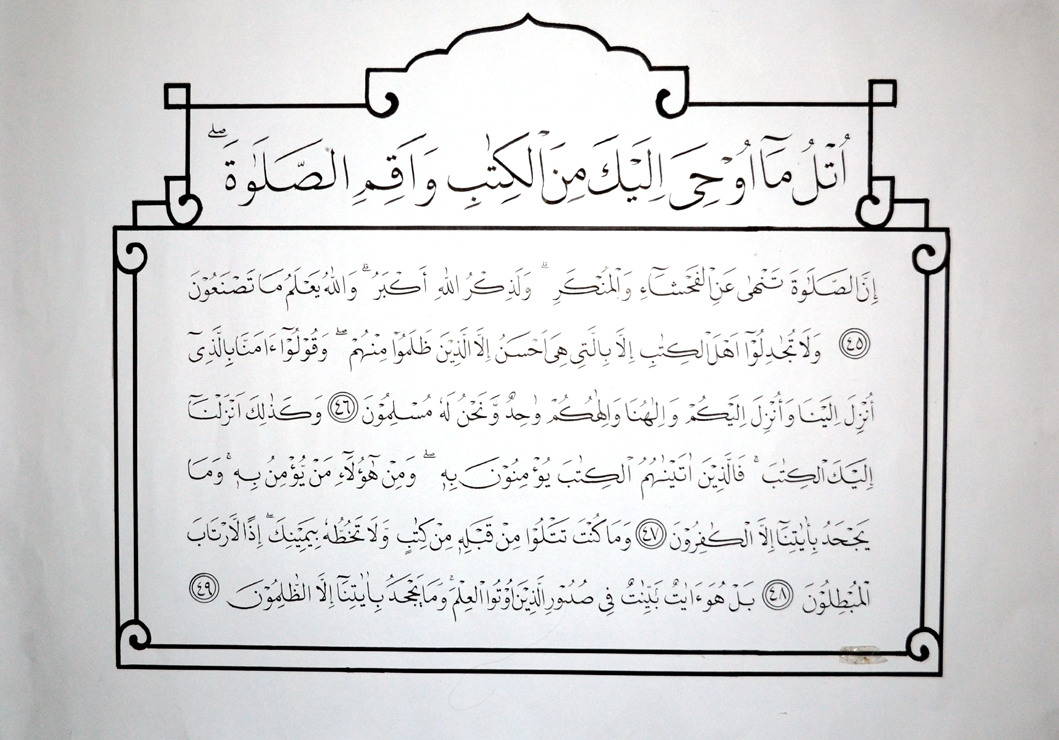 اُتْلُ مَآ اُوْحِيَ اِلَيْكَ مِنَ الْكِتٰبِ وَاَقِمِ الصَّلٰوةَ ۖ
اِنَّ الصَّلٰوةَ تَنْهٰى عَنِ الْفَحْشَاۤءِ وَالْمُنْكَرِ ۗ وَلَذِكْرُ اللهِ أَكْبَرُ ۗ وَاللهُ يَعْلَمُ مَا تَصْنَعُوْنَ
﴿٤٥﴾ وَلَا تُجَادِلُوْٓا اَهْلَ الْكِتٰبِ اِلَّا بِالَّتِيْ هِيَ اَحْسَنُ اِلَّا الَّذِيْنَ ظَلَمُوْا مِنْهُمْ ۖ وَقُوْلُوْٓا ءَامَنَّا بِالَّذِيْٓ
أُنْزِلَ اِلَيْنَا وَأُنْزِلَ اِلَيْكُمْ وَاِلٰهُنَا وَاِلٰهُكُمْ وٰحِدٌ وَّنَحْنُ لَهٗ مُسْلِمُوْنَ ﴿٤٦﴾ وَكَذٰلِكَ اَنْزَلْنَآ
اِلَيْكَ الْكِتٰبَ ۚ فَالَّذِيْنَ اٰتَيْنٰهُمُ الْكِتٰبَ يُؤْمِنُوْنَ بِهٖ ۖ وَمِنْ هٰٓؤُلَاۤءِ مَنْ يُّؤْمِنُ بِهٖ ۚ وَمَا
يَجْحَدُ بِاٰيٰتِنَآ اِلَّا الْكٰفِرُوْنَ ﴿٤٧﴾ وَمَا كُنْتَ تَتْلُوْا مِنْ قَبْلِهٖ مِنْ كِتٰبٍ وَّلَا تَخُطُّهٗ بِيَمِيْنِكَ ۖ إِذًا لَّارْتَابَ
الْمُبْطِلُوْنَ ﴿٤٨﴾ بَلْ هُوَ ءَايٰتٌ بَيِّنٰتٌ فِيْ صُدُوْرِ الَّذِيْنَ اُوْتُوا الْعِلْمَ ۚ وَمَا يَجْحَدُ بِاٰيٰتِنَآ اِلَّا الظّٰلِمُوْنَ ﴿٤٩﴾